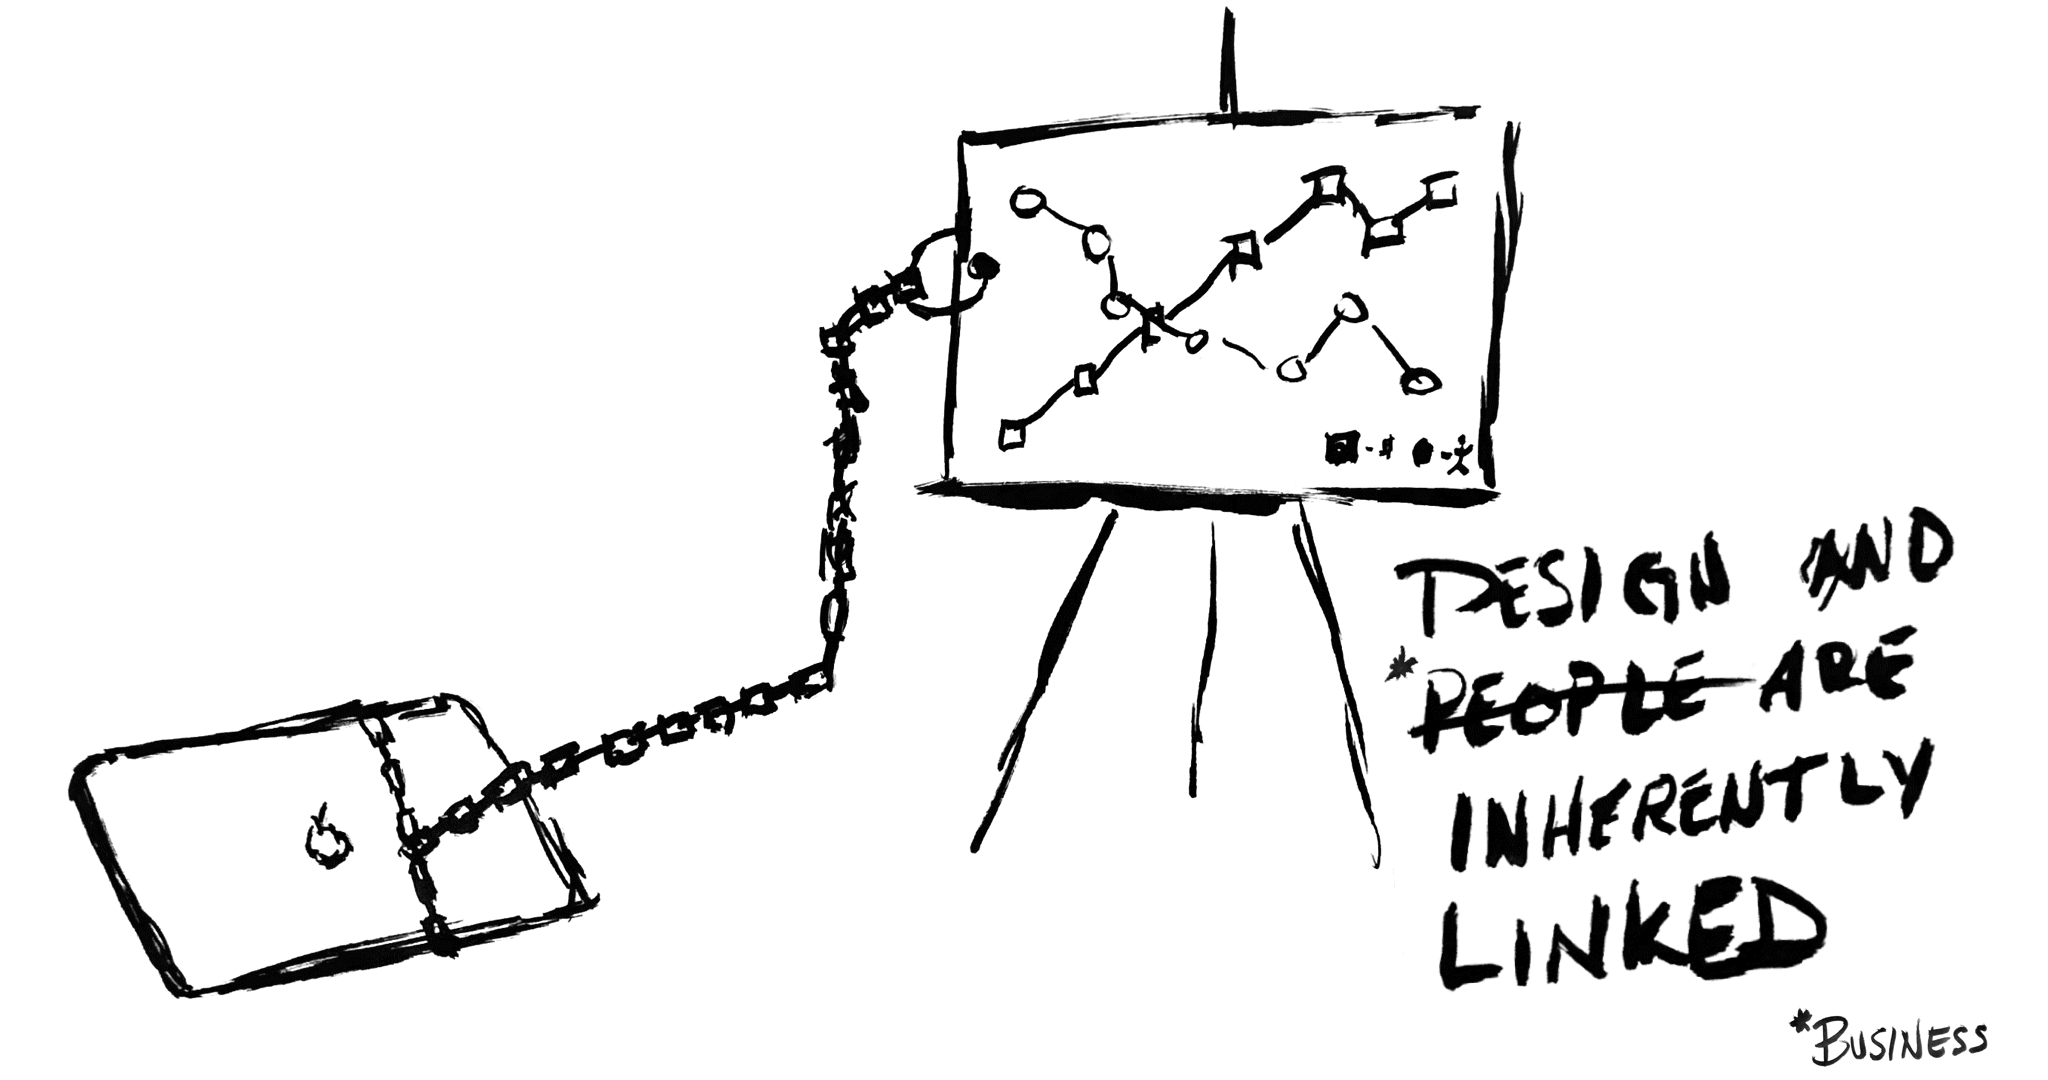 DESIGN AND
*PEOPLE ARE
INHERENTLY
LINKED
*BUSINESS